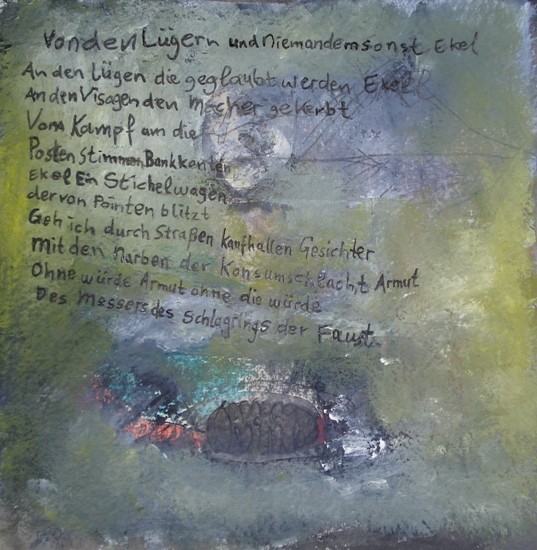 von den Lügern und Niemandem sonst Ekel
An den Lügen die geglaubt werden Ekel
An den Visagen den Macher gekerbt
Vom Kampf am die
Posten Stimmen Bankkonten
Ekel Ein Stichelwagen
der von Pointen blitzt
Geh ich durch Straßen kaufhallen Gesichter
Mit den Narben der Konsumschlacht Armut
Ohne würde Armut ohne die würde
Des Messers des Schlagrings der Faust